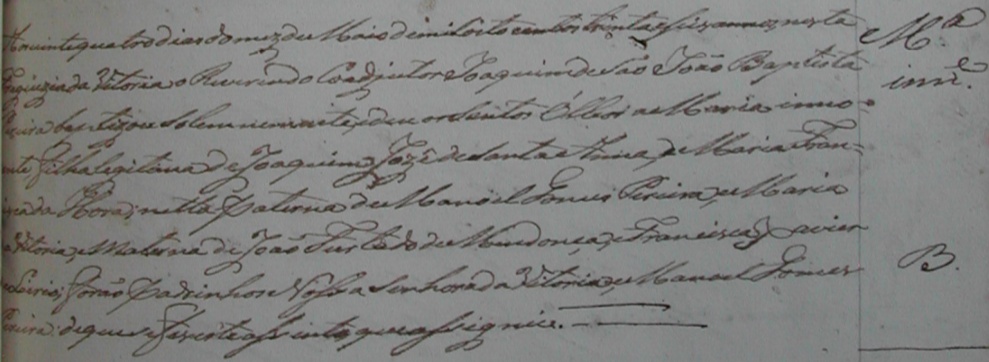 vinte quatro dias do mez de Maio de mil oito centos trinta e seis annos nesta
Freguezia da Vitoria o Reverendo Coadjutor Joaquim de São João Baptista
baptizou solemnemente, e deu os Santos Olleos a Maria inno-
filha legitima de Joaquim Jozé de Santa Anna, e Maria Fran-
da Hora; netta Paterna de Manoel Gomes Pereira, e Maria
Vitoria, e Materna de João Furtado de Mendonça, e Francisca Xavier
forão Padrinhos Nossa Senhora da Vitoria, e Manoel Gomes
de que fis este assinto, que assignei.
M.ª
inn.e
B.